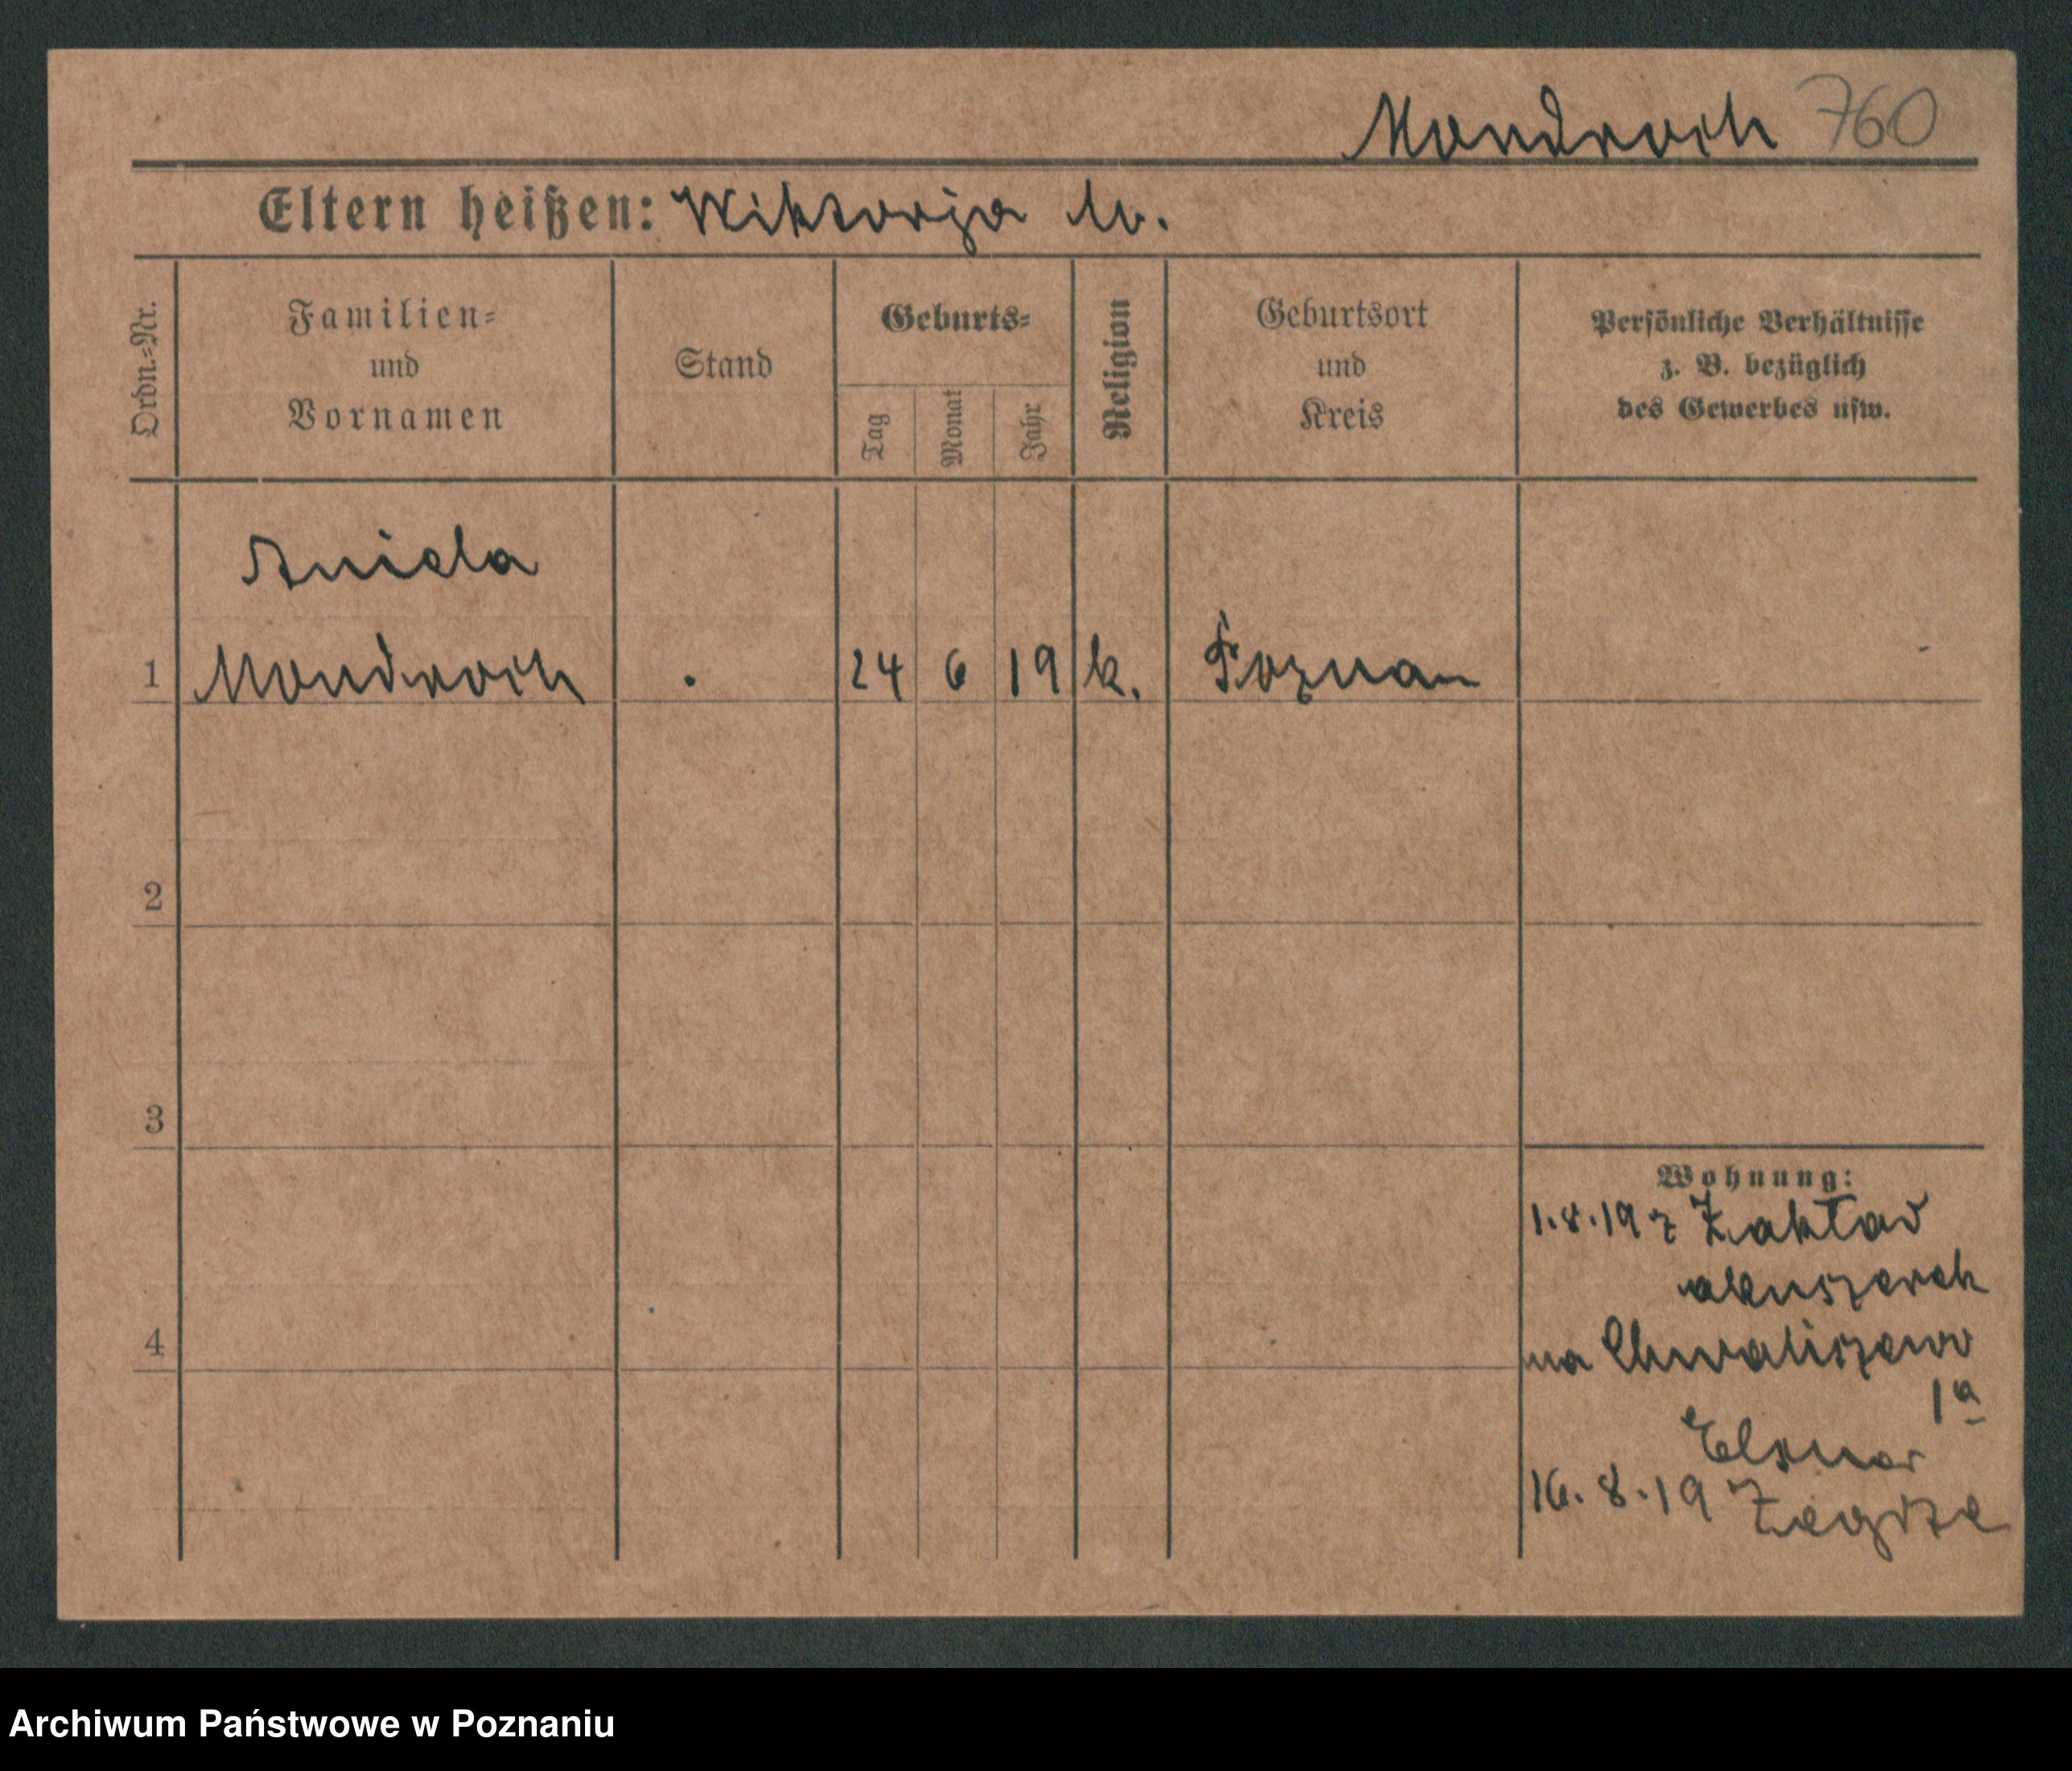 Mondroch 760
Eltern heißen: Wiktorja M.
Ordn.=Nr.
Familien=
und
Vornamen
Stand
Geburts=
Tag
Monat
Jahr
Religion
Geburtsort
und
Kreis
Persönliche Verhältnisse
z. B. bezüglich
des Gewerbes usw.
Aniela
1 Mondroch . 24 6 19 k. Poznan
2
3
Wohnung:
1.8.19 z Zakład
akuszerek
4
na Chwaliszewo
1a
Elsner
16.8.19
Archiwum Państwowe w Poznaniu